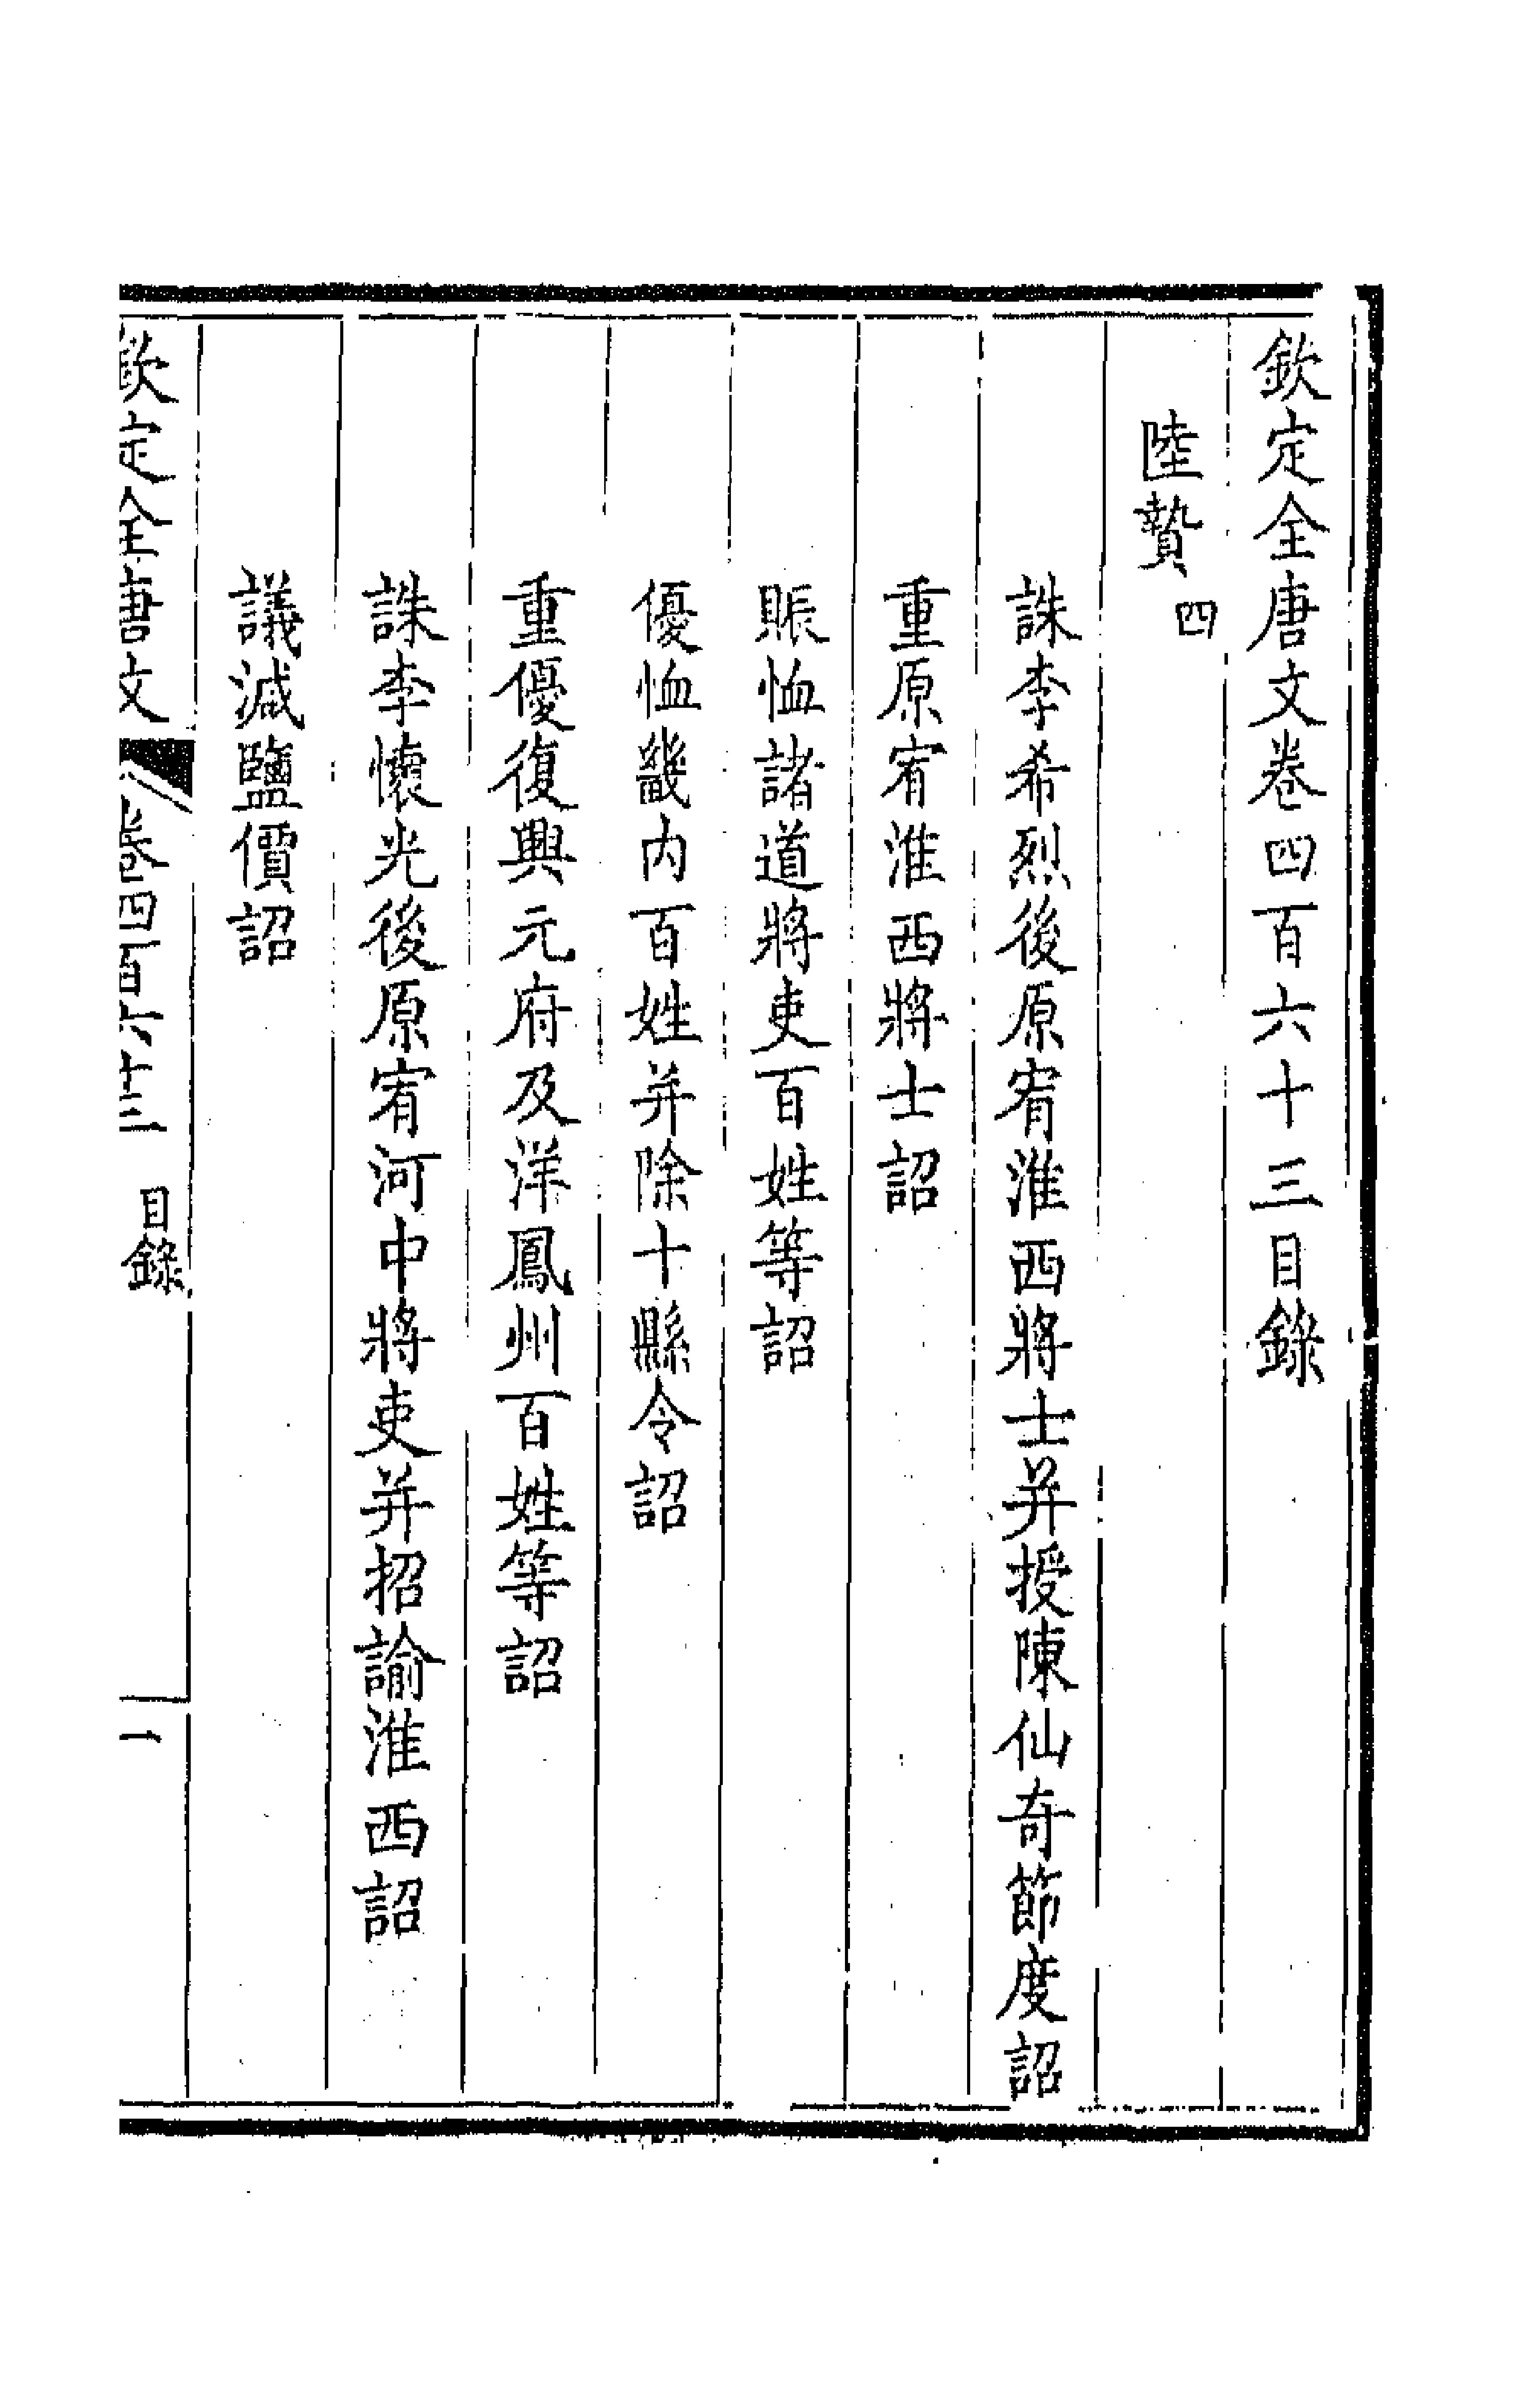 欽定全唐文卷四百六十三目錄
陸贄 四
誅李希烈後原宥淮西將士并授陳仙奇節度詔
重原宥淮西將士詔
賑恤諸道將吏百姓等詔
優恤畿內百姓并除十縣令詔
重優復興元府及洋鳳州百姓等詔
誅李懷光後原宥河中將吏并招諭淮西詔
議減鹽價詔
欽定全唐文 卷四百六十三 目錄 一